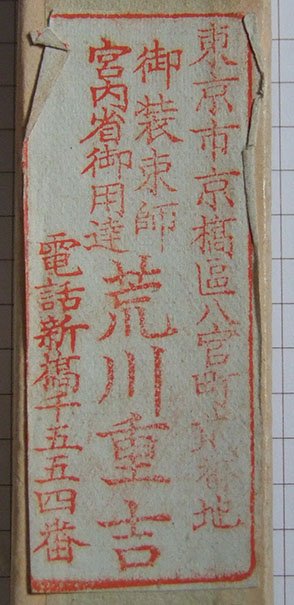 東京市京橋區八官町番地
御装束師
宮内省御用達
荒川重吉
電話新橋千五五四番